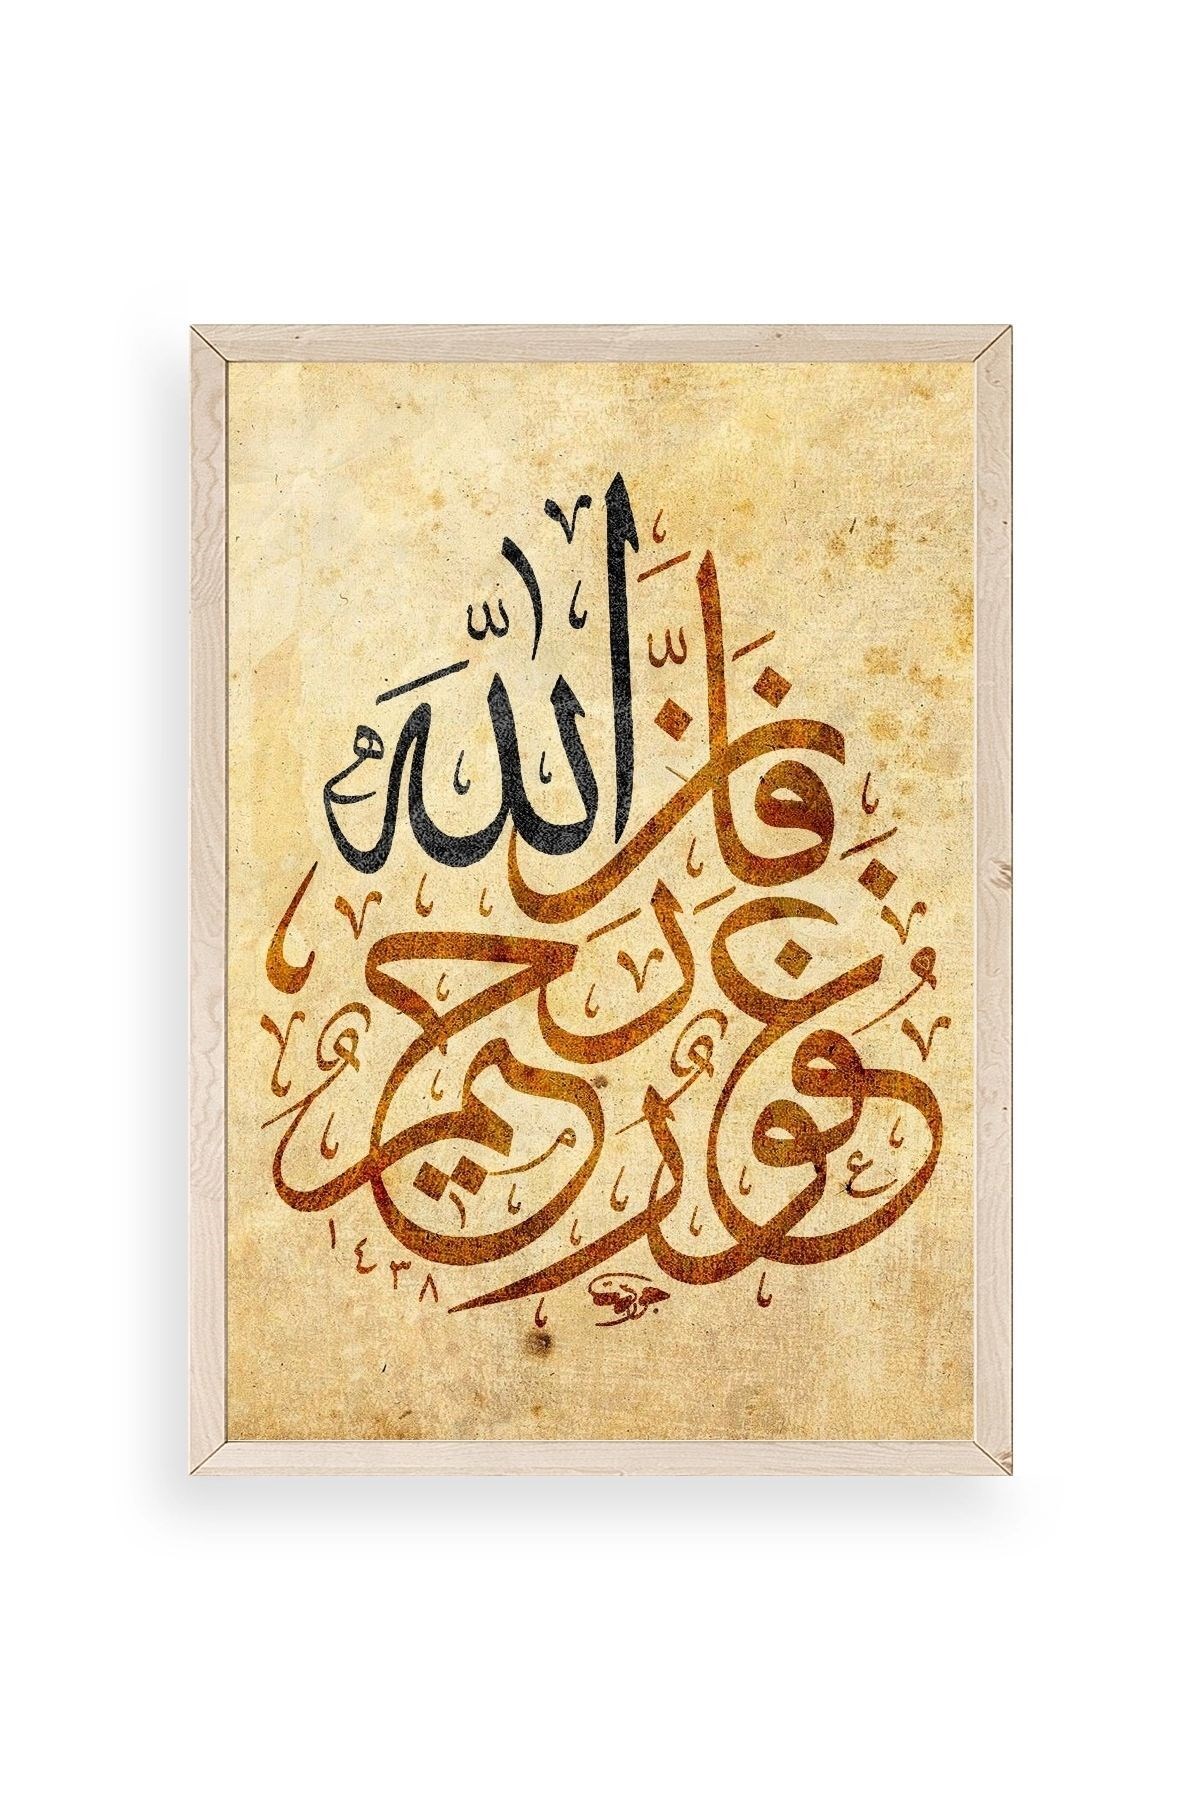 فَإِنَّ اللَّهَ
غَفُورٌ رَحِيمٌ
١٤٣٨